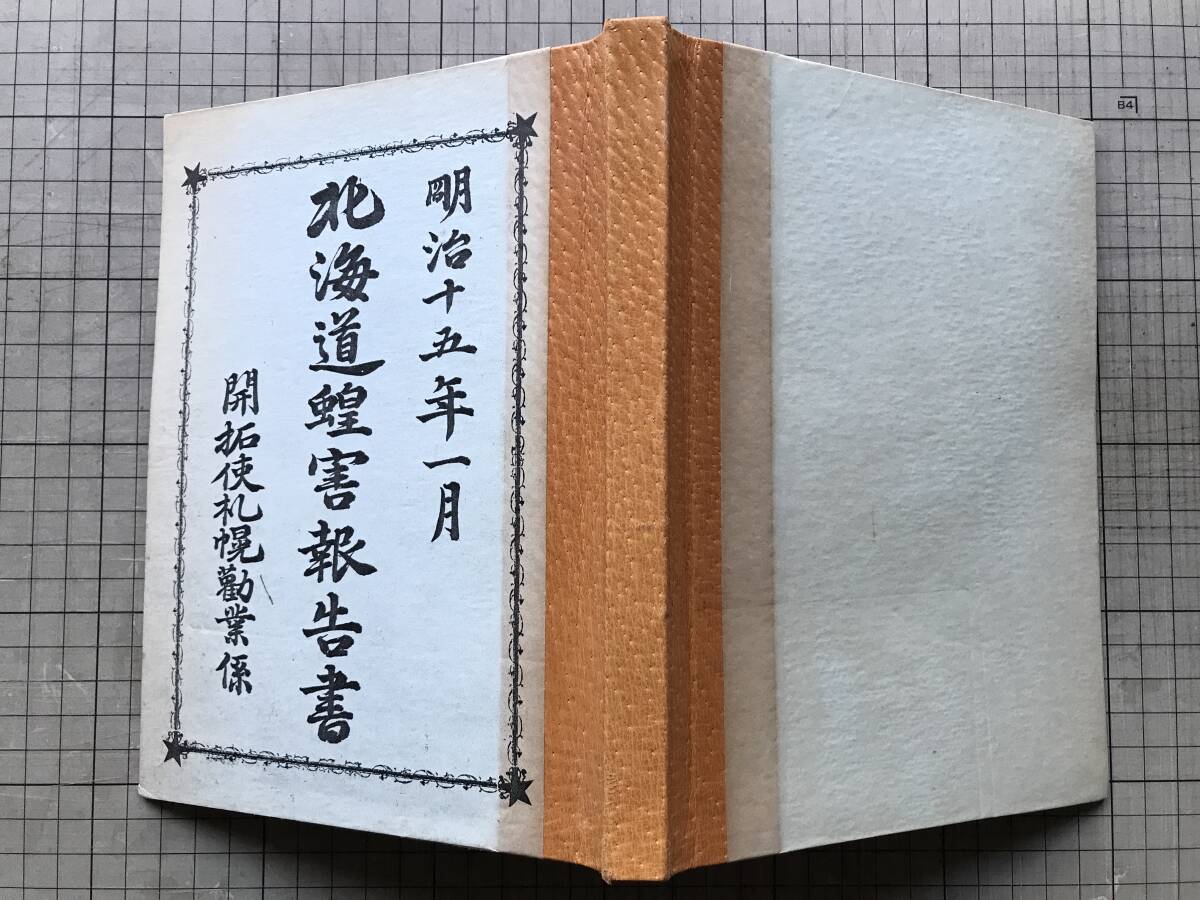 明治十五年一月
北海道蝗害報告書
開拓使札幌勸業係
B4